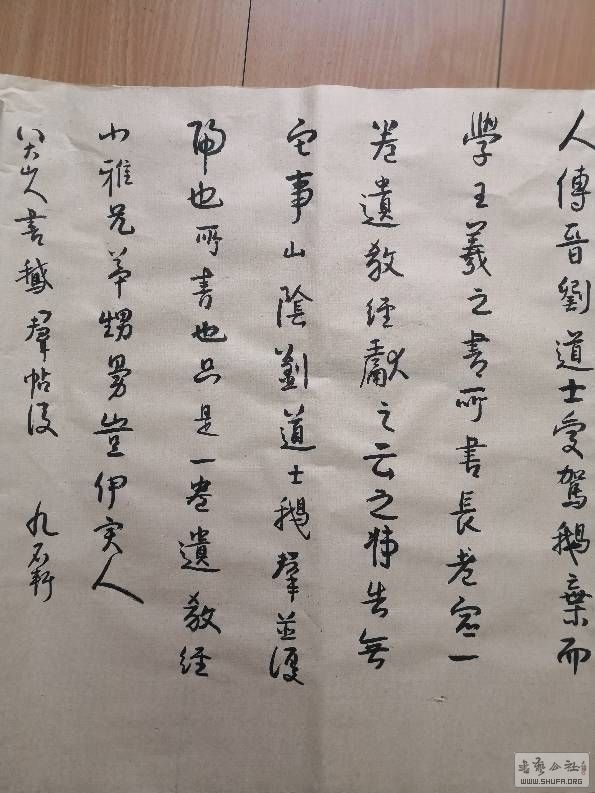 人傳晉劉道士愛駕鵝棄而
學王羲之書所書長一
卷遺教經獻之云之告無
它事山陰劉道士鵝羣並復
歸也所書也只是一卷遺教經
小雅兄弟甥舅豈伊異人
八大山人書鵝羣帖後 九軒
书艺公社
WWW.SHUFA.ORG